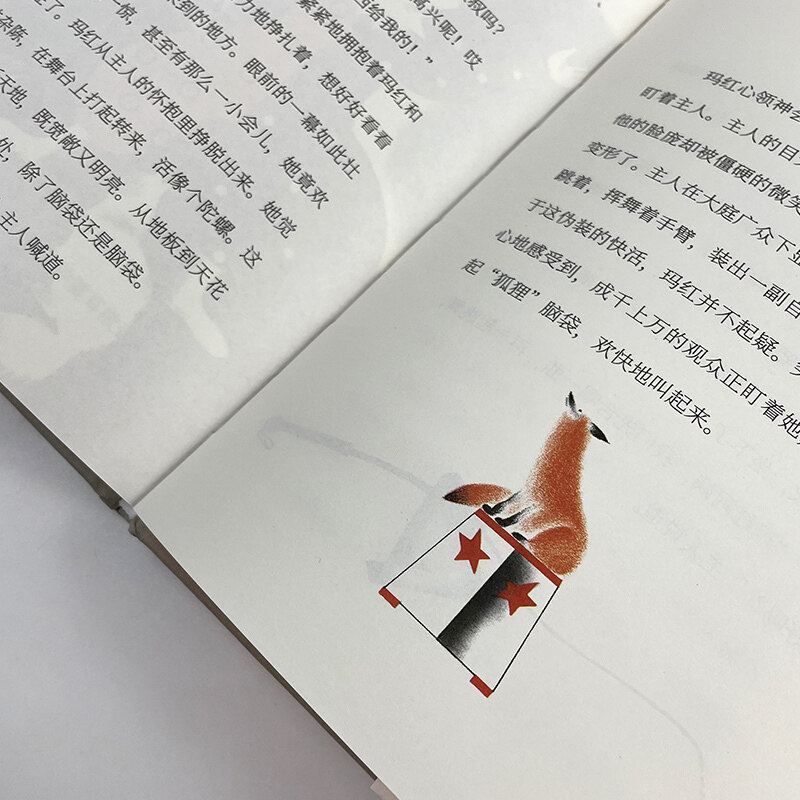 叔吗？
高兴呢！哎
给我的！”
紧紧地拥抱着玛红和
力地挣扎着，想好好看看
来到的地方。眼前的一幕如此壮
一惊，甚至有那么一小会儿，她竟欢
了。玛红从主人的怀抱里挣脱出来。她觉
杂陈，在舞台上打起转来，活像个陀螺。这
天地，既宽敞又明亮。从地板到天花
处，除了脑袋还是脑袋。
主人喊道。
玛红心领神
盯着主人。主人的目
他的脸庞却被僵硬的微笑
变形了。主人在大庭广众下
跳着，挥舞着手臂，装出一副
于这伪装的快活，玛红并不起疑。
心地感受到，成千上万的观众正盯着她
起“狐狸”脑袋，欢快地叫起来。